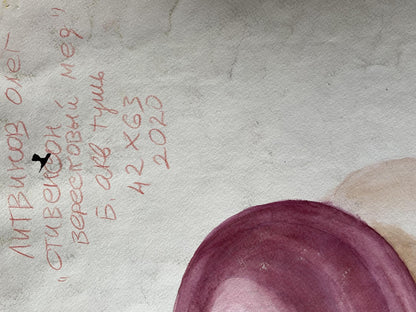 ЛИТВИНОВ ОЛЕГ
"СТИВЕНСОН
ВЕРЕСКОВЫЙ МЕД"
Б. акв тушь
42 х 63
2020